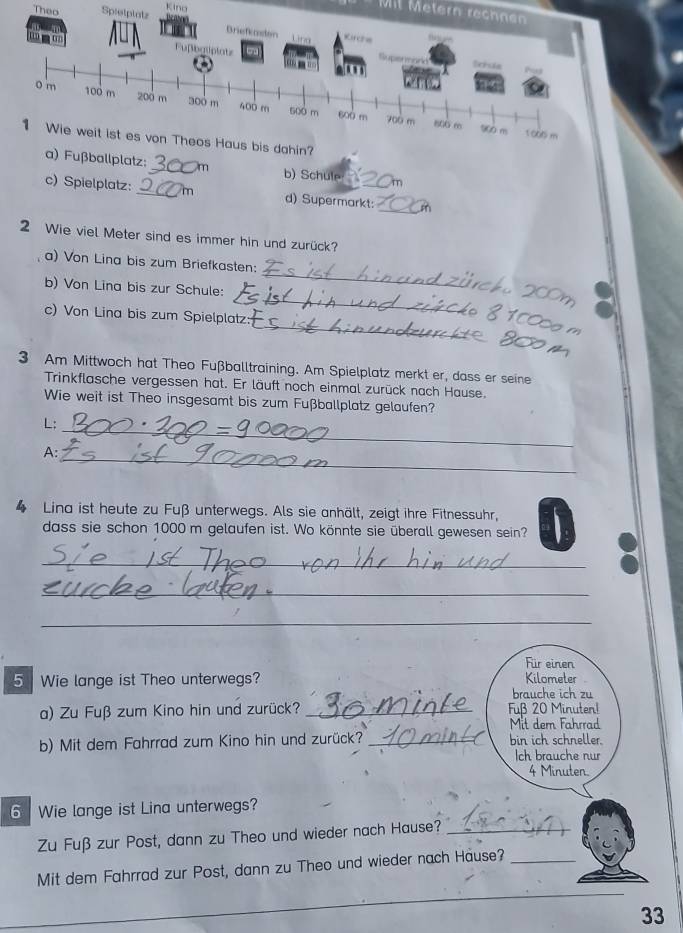 Mit Metern rechnen
Theo Spielplatz Kino Fußballplatz Briefkasten Lina Kirche Supermarkt Baum Schule Post
0 m 100 m 200 m 300 m 400 m 500 m 600 m 700 m 800 m 900 m 1000 m
1 Wie weit ist es von Theos Haus bis dahin?
a) Fußballplatz: 300m b) Schule: 20m
c) Spielplatz: 200m d) Supermarkt: 700m
2 Wie viel Meter sind es immer hin und zurück?
a) Von Lina bis zum Briefkasten: Es ist hinund zürcku 200m
b) Von Lina bis zur Schule: Es ist hin und
c) Von Lina bis zum Spielplatz: Es ist 800m
3 Am Mittwoch hat Theo Fußballtraining. Am Spielplatz merkt er, dass er seine
Trinkflasche vergessen hat. Er läuft noch einmal zurück nach Hause.
Wie weit ist Theo insgesamt bis zum Fußballplatz gelaufen?
L: 300 · 300 = 90000
A: Es ist 90000m
4 Lina ist heute zu Fuß unterwegs. Als sie anhält, zeigt ihre Fitnessuhr,
dass sie schon 1000 m gelaufen ist. Wo könnte sie überall gewesen sein?
Sie ist Theo von ihr hin und
zurcke laufen.
5 Wie lange ist Theo unterwegs?
a) Zu Fuß zum Kino hin und zurück? 30 minte
b) Mit dem Fahrrad zum Kino hin und zurück? 10 minte
Für einen
Kilometer
brauche ich zu
Fuß 20 Minuten!
Mit dem Fahrrad
bin ich schneller.
Ich brauche nur
4 Minuten.
6 Wie lange ist Lina unterwegs?
Zu Fuß zur Post, dann zu Theo und wieder nach Hause?
Mit dem Fahrrad zur Post, dann zu Theo und wieder nach Hause?
33